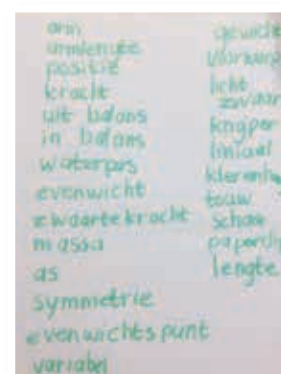 arm
armlengte
positie
kracht
uit balans
in balans
waterpas
evenwicht
zwaartekracht
massa
as
symmetrie
evenwichtspunt
variabel
gewicht
licht
zwaar
knijper
liniaal
touw
schaar
lengte